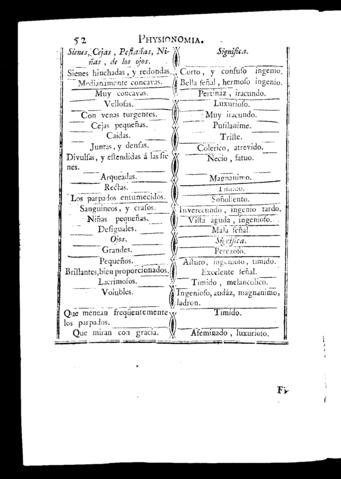 52 PHYSIONOMIA.
Sienes, Cejas, Pestañas, Ni-
ñas, de los ojos. Significa.
Sienes hinchadas, y redondas. Corto, y confuso ingenio.
Medianamente concavas. Bella señal, hermoso ingenio.
Muy concavas. Pertinàz, iracundo.
Vellosas. Luxurioso.
Con venas turgentes. Muy iracundo.
Cejas pequeñas. Pusilanime.
Caidas. Triste.
Juntas, y densas. Colerico, atrevido.
Divulsas, y estendidas á las sie- Necio, fatuo.
nes.
Arqueadas. Magnanimo.
Rectas. Timido.
Los parpados entumecidos. Soñoliento.
Sanguineos, y crasos. Inverecundo, ingenio tardo.
Niñas pequeñas. Vista aguda, ingenioso.
Desiguales. Mala señal.
Ojos. Significa.
Grandes. Perezoso.
Pequeños. Astuto, ingenioso, timido.
Brillantes, bien proporcionados. Excelente señal.
Lacrimosos. Timido, melancolico.
Volubles. Ingenioso, audàz, magnanimo,
ladron.
Que menean freqüentemente Timido.
los parpados.
Que miran con gracia. Afeminado, luxurioso.
Fi-